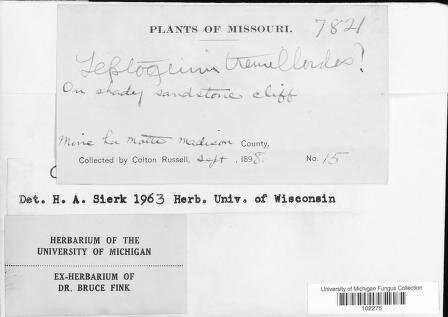 PLANTS OF MISSOURI. 7821
Leptogium tremelloides?
On shady sandstone cliff
Mine La Motte Madison County.
Collected by Colton Russell, Sept, 1898. No. 15
Det. H. A. Sierk 1963 Herb. Univ. of Wisconsin
HERBARIUM OF THE
UNIVERSITY OF MICHIGAN
EX-HERBARIUM OF
DR. BRUCE FINK
University of Michigan Fungus Collection
102275